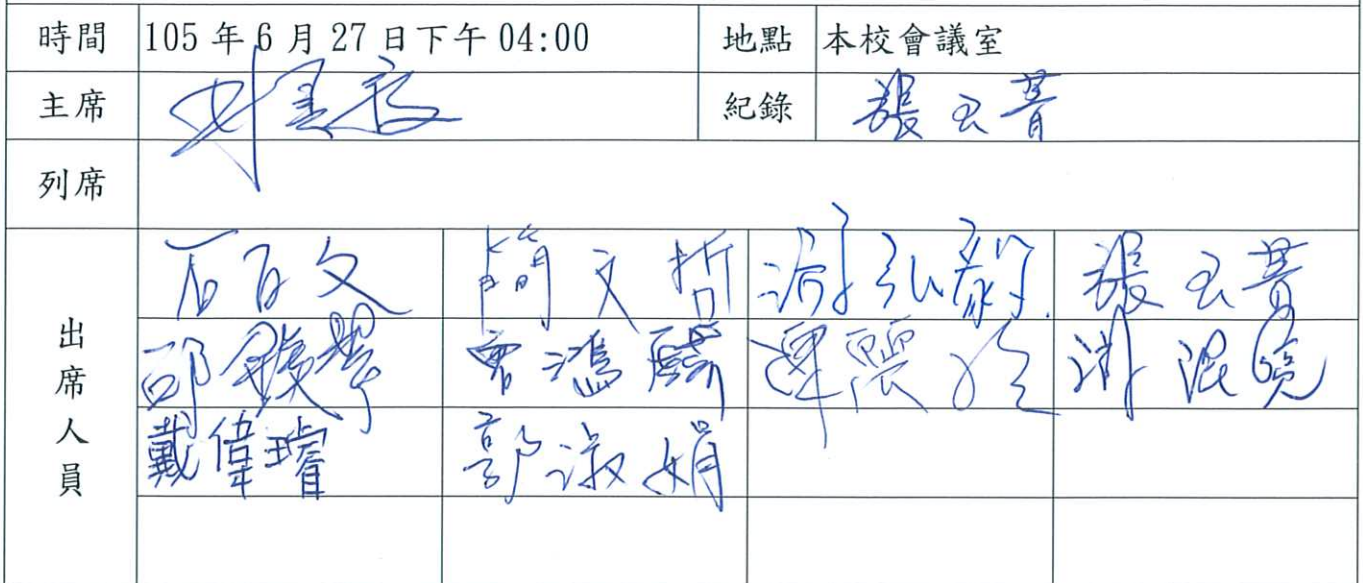 時間 105 年 6 月 27 日下午 04:00 地點 本校會議室
主席 紀錄 張玉菁
列席
出席人員
石百文 簡文哲 游弘毅 張玉菁
邱鏡學 曾鴻麟
戴偉璿 郭淑娟